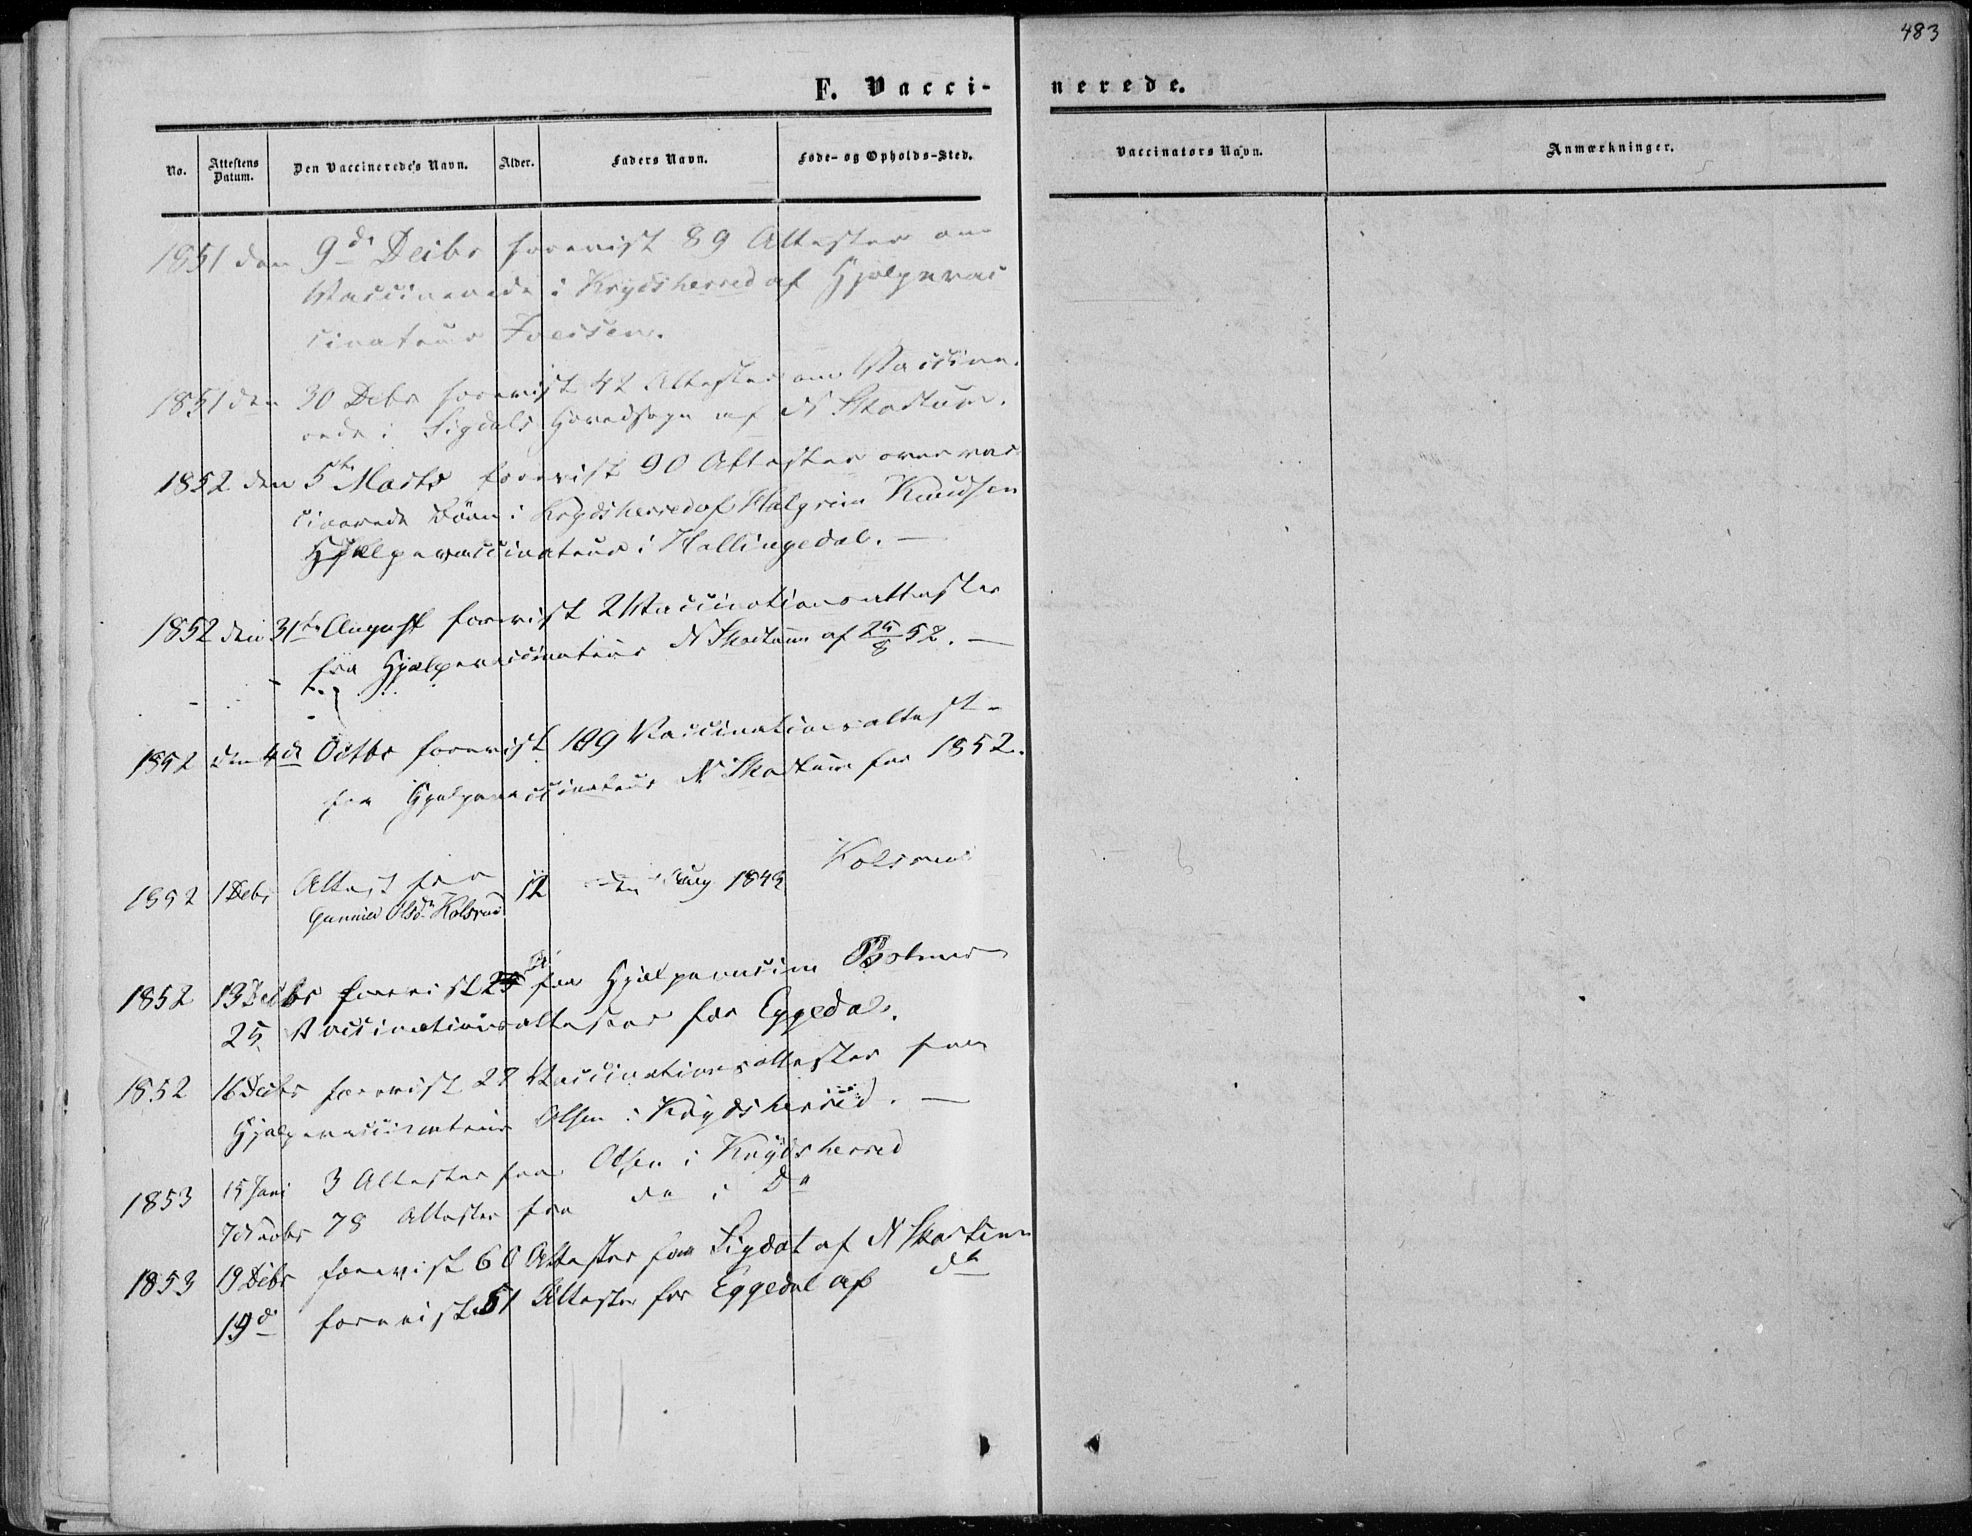 483
F. Vacci-
nerede.
No.
Attestens Datum.
Den Vaccineredes Navn.
Alder.
Faders Navn.
Føde- og Opholds-Sted.
Vaccinators Navn.
Anmærkninger.
1851 den 9de Decbr forevist 89 Attester om
Vaccinerede i Krydsherred af Hjælpevac
cinateur
1851 den 30 Debr forevist 42 Attester om Vaccine-
rede i Sigdals Hovedsogn af N Skartum.
1852 den 5te Marts forevist 90 Attester over vac
cinerede Børn i Krydsherred af Halgrim Knudsen
Hjælpevaccinateur i Hallingedal. —
1852 den 31te August forevist 2 Vaccinationsattester
fra Hjælpevaccinateur N Skartum af 25/8 52. —
1852 den 4de Octbr forevist 109 Vaccinationsattest-
fra Hjælpevaccinateur N Skartum for 1852.
1852 1 Debr Attest for 12 den Aug 1842 Kolsrud
Gunnild Olsdr Kolsrud
1852 13 Decbr forevist 25 fra Hjælpevaccin
25 Vaccinationsattester for Eggedal.
1852 16 Decbr forevist 28 Vaccinationsattester fra
Hjælpevaccinateur Olsen i Krydsherred. —
1853 15 Juni 3 Attester fra Olsen i Krydsherred
7 Novbr 78 Attester fra do i Do
1853 19 Debr forevist 60 Attester for Sigdal af N Skartum
19de forevist 51 Attester for Eggedal af do